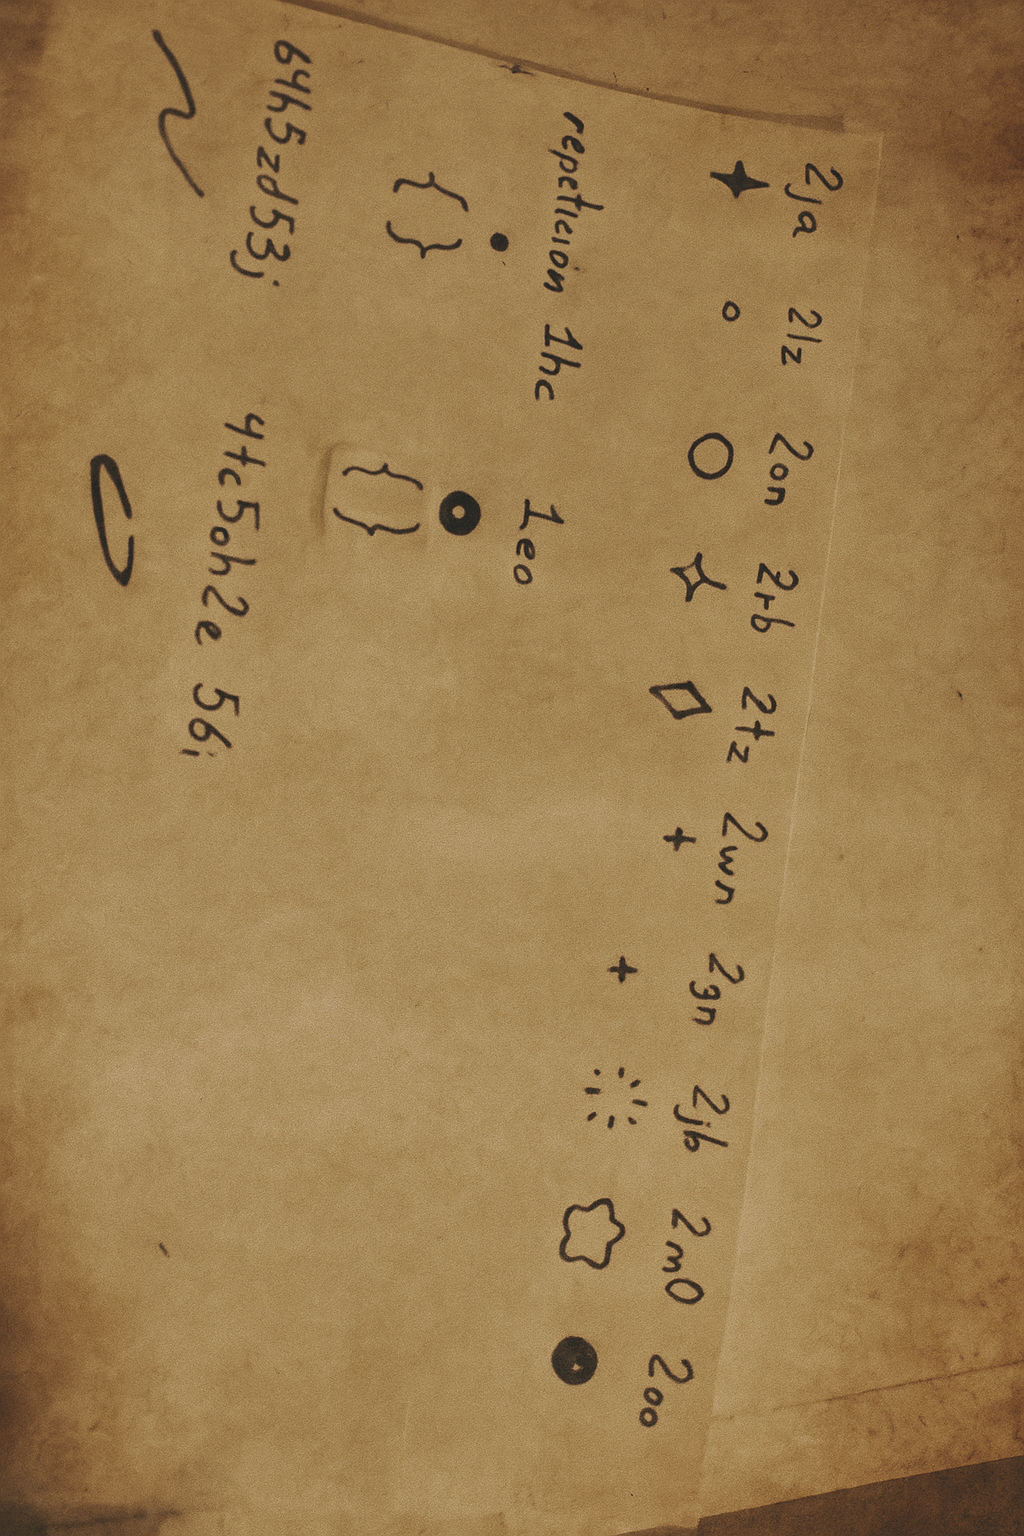 2ja 2lz 2on 2rb 2tz 2wn 2gn 2jb 2mO 2oo
repetición 1hc 1eo
{ } { }
64h5zd53j 4tc5oh2e 56i